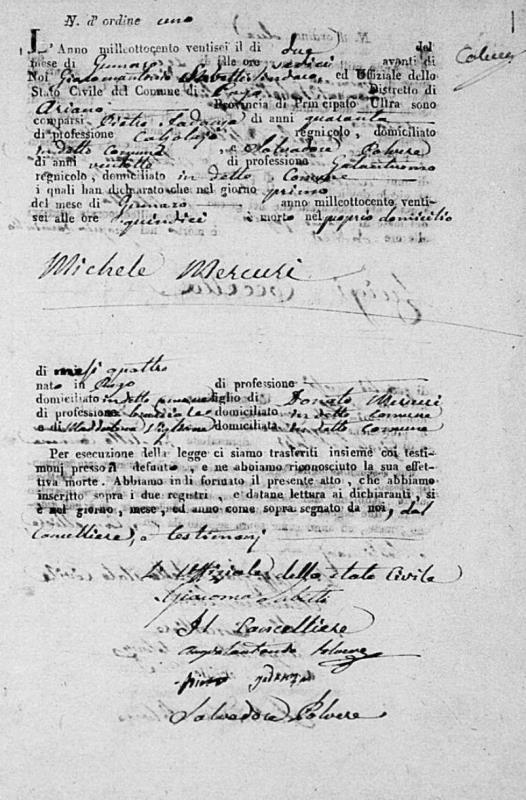 N. d'ordine uno
L'Anno millcottocento ventisei il di due del
mese di Gennaro alle ore sedici avanti di
Noi Giacomantonio Sindaco, ed Uffiziale dello
Stato Civile del Comune di Distretto di
Ariano Provincia di Principato Ultra sono
comparsi Pietro di anni quaranta
di professione regnicolo, domiciliato
in detto comune, e Salvadore Polvere
di anni ventotto di professione Galantuomo
regnicolo, domiciliato in detto Comune
i quali han dichiarato che nel giorno primo
del mese di Gennaro anno millcottocento venti-
sei alle ore quindici è morto nel proprio domicilio
Michele Mercuri
di mesi quattro
nato in di professione
domiciliato in detto comune figlio di Donato Mercuri
di professione domiciliato in detto Comune
e di Maddalena domiciliata in detto Comune
Per esecuzione della legge ci siamo trasferiti insieme coi testi-
monj presso il defunto, e ne abbiamo riconosciuto la sua effet-
tiva morte. Abbiamo indi formato il presente atto, che abbiamo
inscritto sopra i due registri, e datane lettura ai dichiaranti, si
è nel giorno, mese, ed anno come sopra segnato da noi, dal
Cancelliere, e testimonj
L'Uffiziale dello stato Civile
Il Cancelliere
Salvadore Polvere